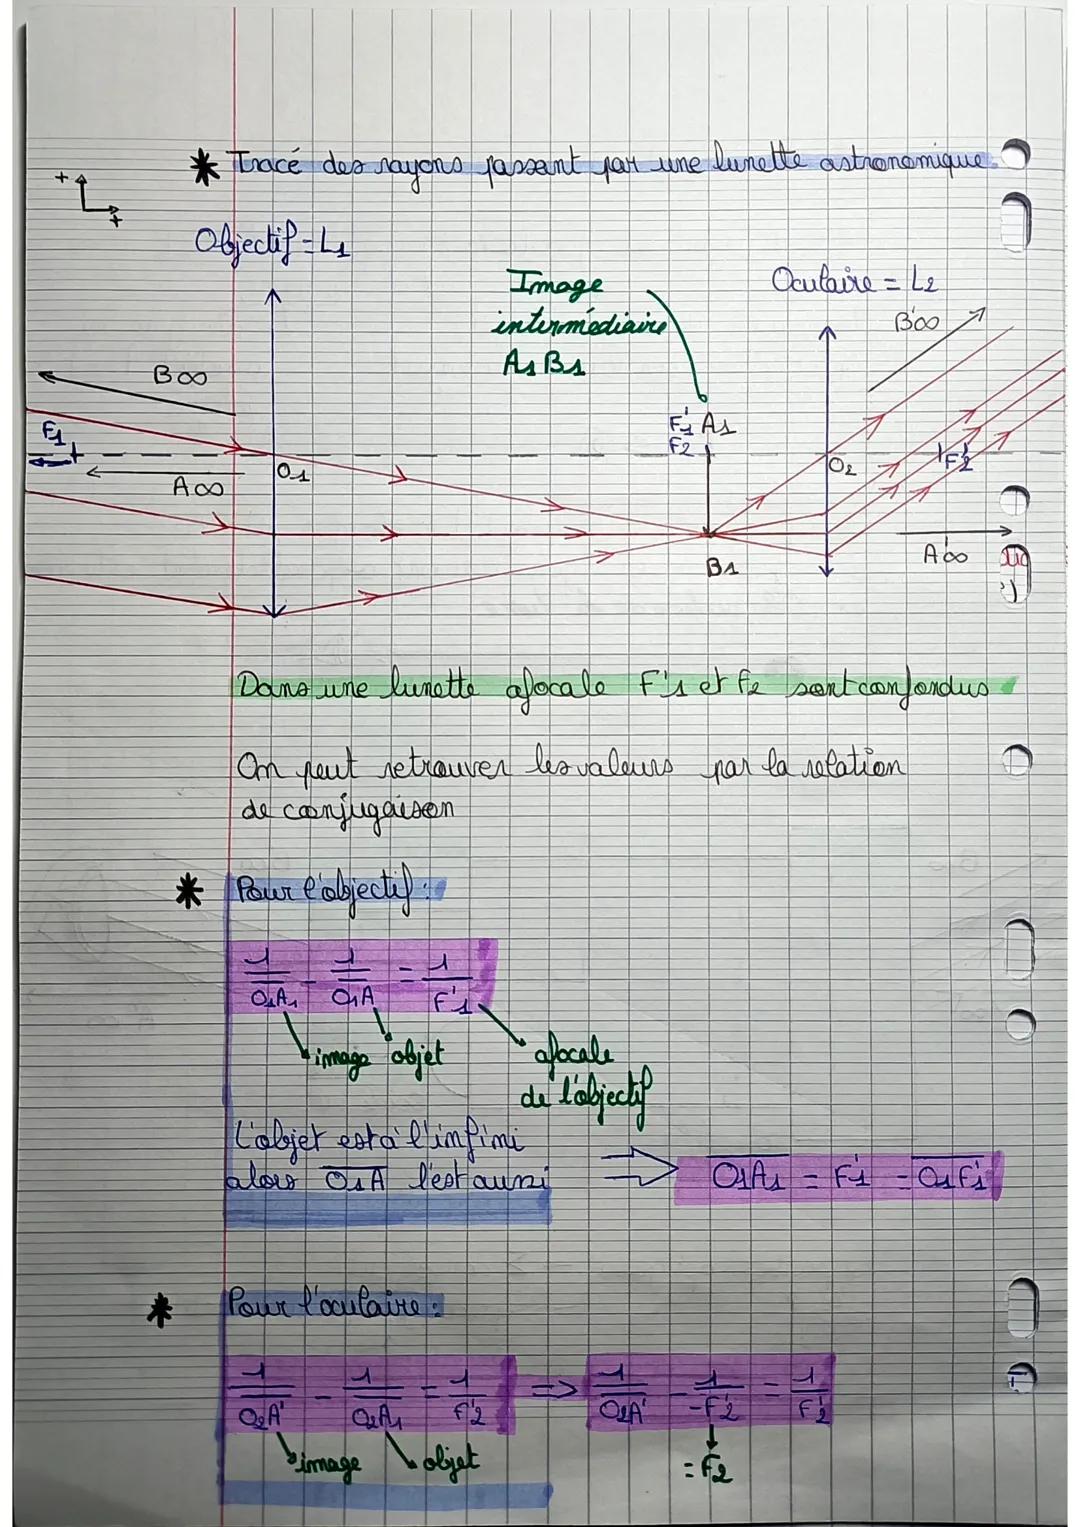 * Tracé des rayons passant par une lunette astronomique.
+
+
Objectif = L1
Image
intermédiaire
A1 B1
Oculaire = L2
B'∞
B∞
F1
F'1 A1
F2
O1
O2
F'2
A∞
B1
A'∞
Dans une lunette afocale F'1 et F2 sont confondus
On peut retrouver les valeurs par la relation
de conjugaison
* Pour l'objectif :
1/O1A1 - 1/O1A = 1/F'1
image objet afocale
de l'objectif
L'objet est à l'infini
alors O1A l'est aussi ⇒ O1A1 = F'1 = O1F'1
* Pour l'oculaire :
1/O2A' - 1/O2A1 = 1/F'2 => 1/O2A' - 1/-F'2 = 1/F'2
image objet = F2